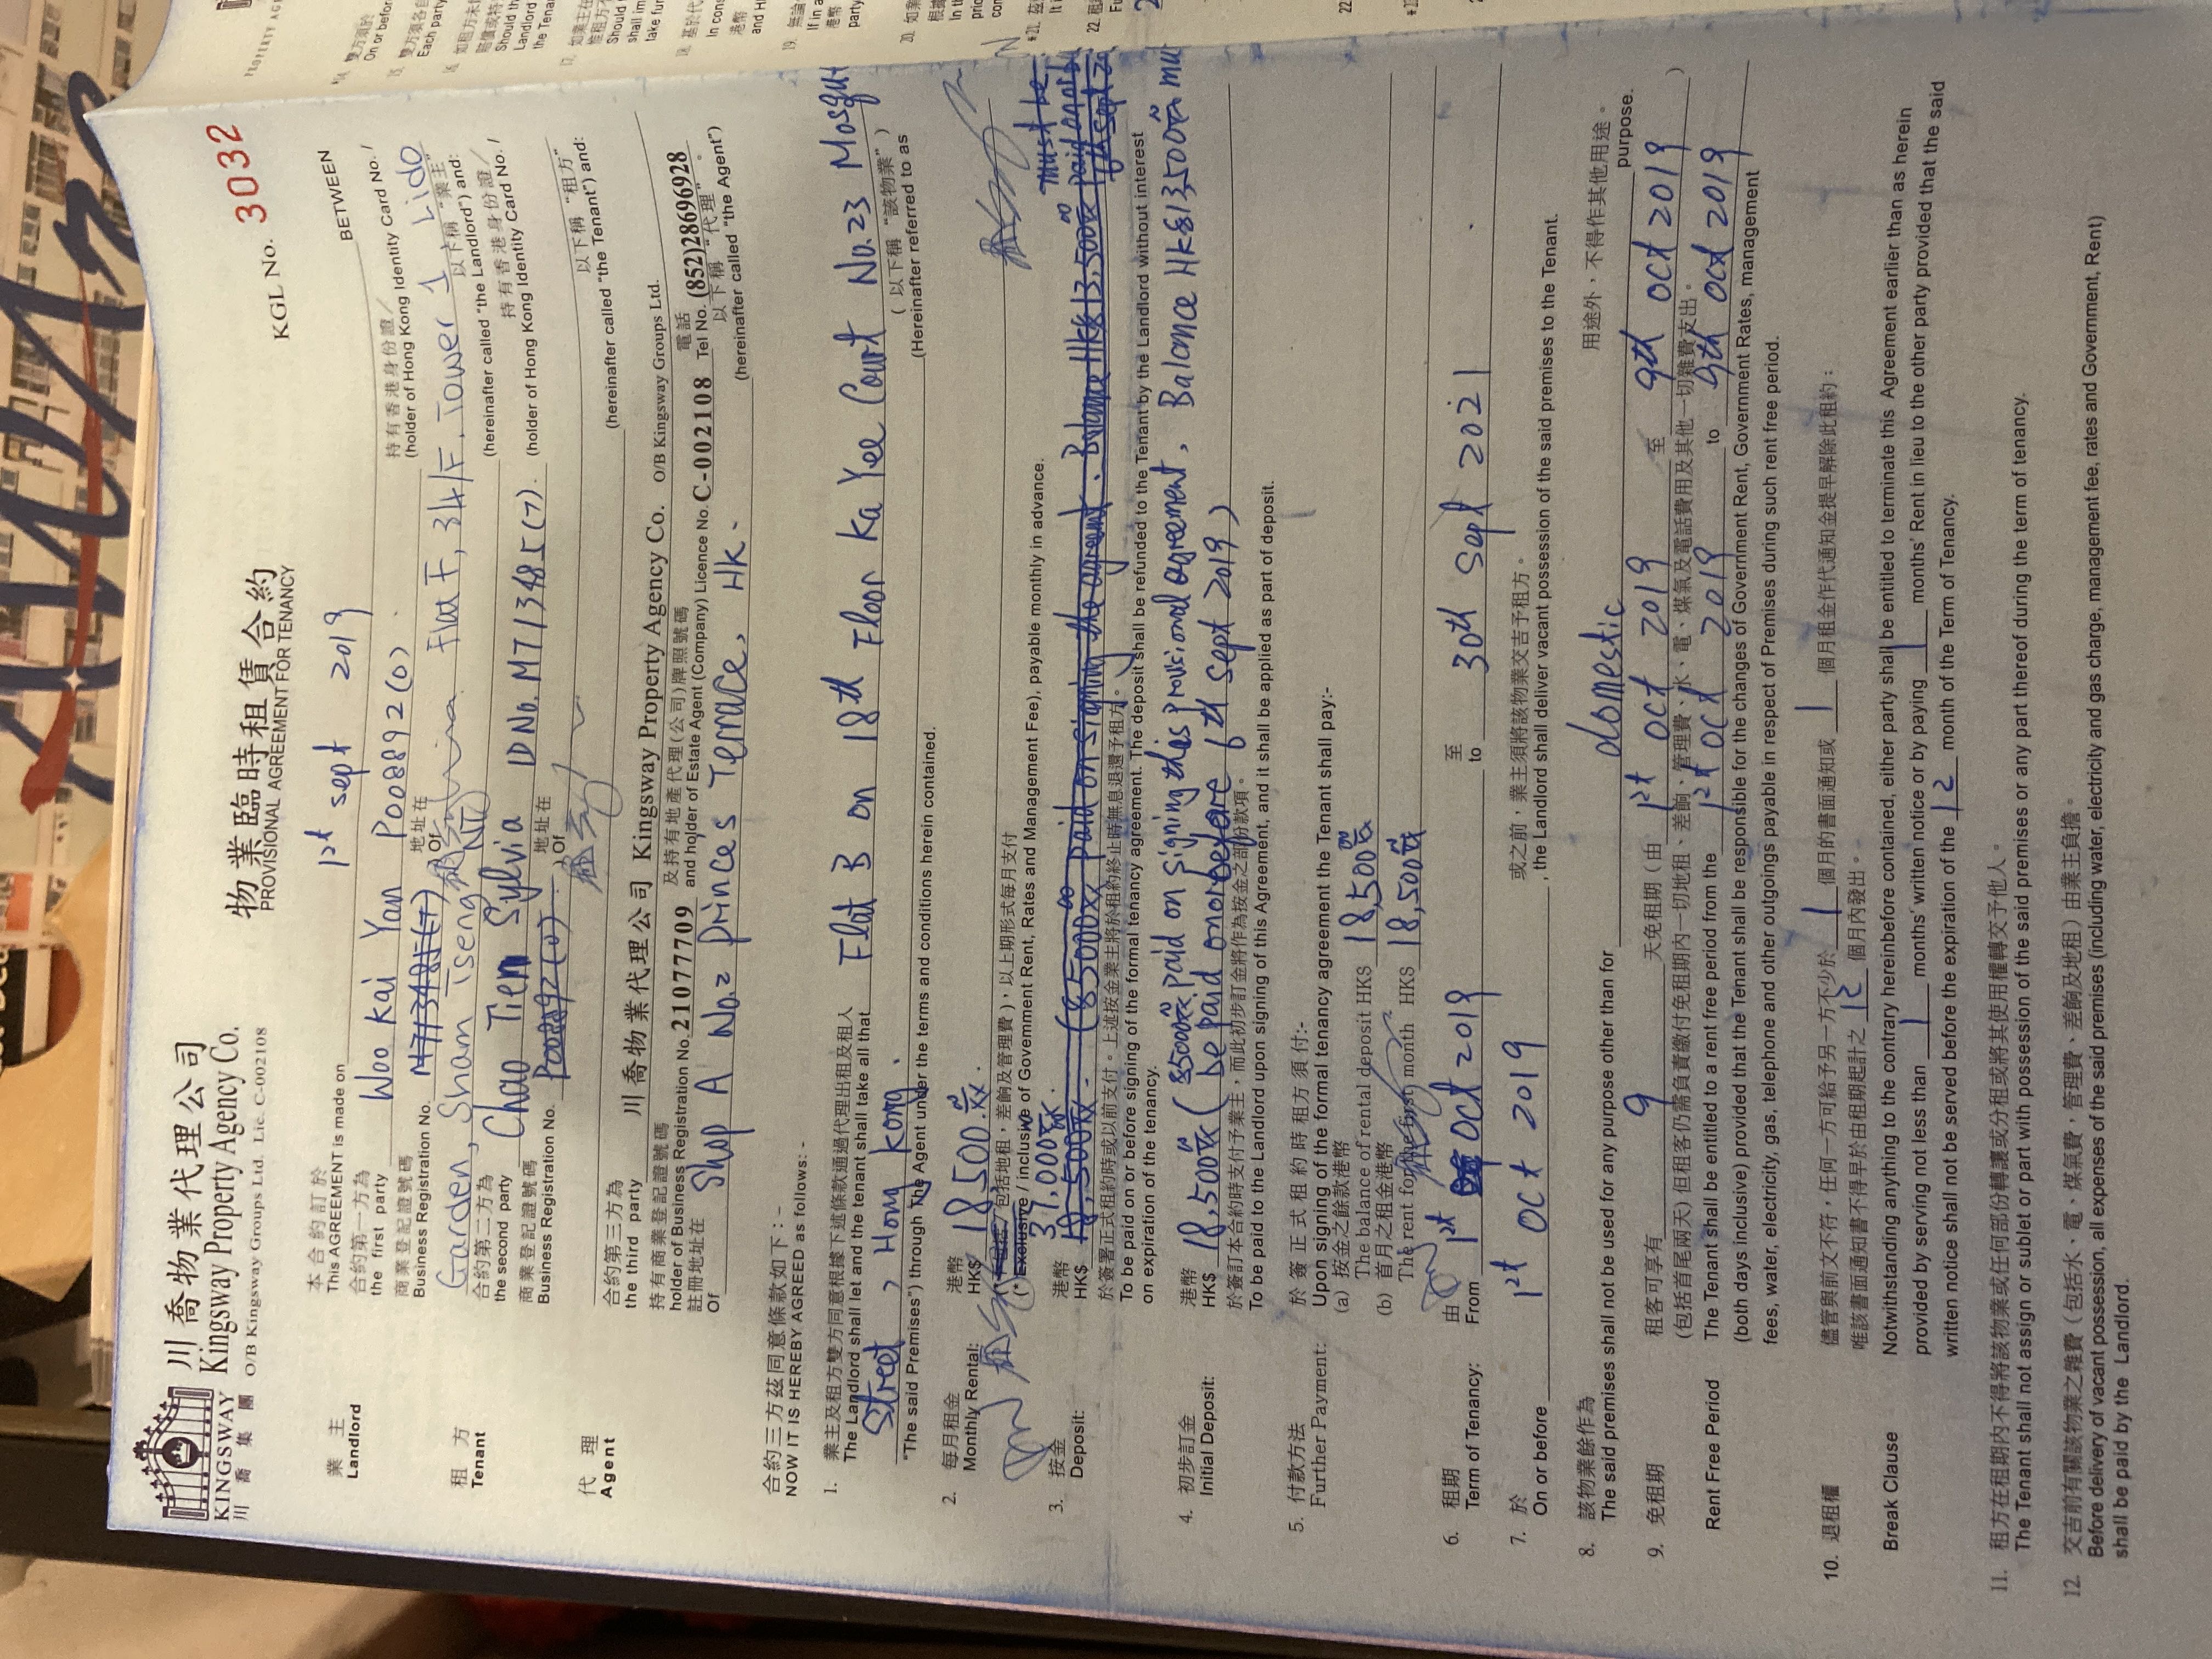 川喬物業代理公司
Kingsway Property Agency Co.
O/B Kingsway Groups Ltd. Lic. C-002108
KINGSWAY
川喬集團
物業臨時租賃合約
PROVISIONAL AGREEMENT FOR TENANCY
KGL No. 3032
本合約訂於
This AGREEMENT is made on 1st Sept 2019 BETWEEN
業主
Landlord
合約第一方為
the first party Woo Kai Yan P008892(0)
持有香港身份證/
(holder of Hong Kong Identity Card No. /
商業登記證號碼
Business Registration No.
地址在
Of Flat F, 34/F, Tower 1 Lido
以下稱“業主”
(hereinafter called "the Landlord") and:
Garden, Sham Tseng NT
租方
Tenant
合約第二方為
the second party Chao Tien Sylvia ID No. M713485(7).
持有香港身份證/
(holder of Hong Kong Identity Card No. /
商業登記證號碼
Business Registration No.
地址在
) Of
以下稱“租方”
(hereinafter called "the Tenant") and:
代理
Agent
合約第三方為
the third party 川喬物業代理公司 Kingsway Property Agency Co. O/B Kingsway Groups Ltd.
持有商業登記證號碼 及持有地產代理(公司)牌照號碼 電話
holder of Business Registration No. 21077709 and holder of Estate Agent (Company) Licence No. C-002108 Tel No. (852)28696928
註冊地址在 以下稱“代理”。
Of Shop A No.2 Princes Terrace, HK. (hereinafter called "the Agent")
合約三方茲同意條款如下：-
NOW IT IS HEREBY AGREED as follows: -
1. 業主及租方雙方同意根據下述條款通過代理出租及租人
The Landlord shall let and the tenant shall take all that Flat B on 18th Floor Ka Yee Court No.23 Mosque
Street, Hong Kong. （以下稱“該物業”）
(Hereinafter referred to as
"The said Premises") through the Agent under the terms and conditions herein contained.
2. 每月租金 港幣
Monthly Rental: HK$ 18,500.
包括地租，差餉及管理費)，以上期形式每月支付
(* Exclusive / inclusive of Government Rent, Rates and Management Fee), payable monthly in advance.
3. 按金 港幣 37,000
Deposit: HK$ (8,5000 paid on signing the agreement. Balance HK$13,500 must be paid on or before
於簽署正式租約時或以前支付。上述按金業主將於租約終止時無息退還予租方。
To be paid on or before signing of the formal tenancy agreement. The deposit shall be refunded to the Tenant by the Landlord without interest
on expiration of the tenancy.
4. 初步訂金 港幣
Initial Deposit: HK$ 18,500 (85000 paid on signing this provisional agreement, Balance HK$13,500 must
be paid on or before 6th Sept 2019)
於簽訂本合約時支付予業主，而此初步訂金將作為按金之部份款項。
To be paid to the Landlord upon signing of this Agreement, and it shall be applied as part of deposit.
5. 付款方法 於簽正式租約時租方須付:-
Further Payment: Upon signing of the formal tenancy agreement the Tenant shall pay:-
(a) 按金之餘款港幣
The balance of rental deposit HK$ 18,500
(b) 首月之租金港幣
The rent for the first month HK$ 18,500
6. 租期 由 至
Term of Tenancy: From 1st Oct 2019 to 30th Sept 2021
7. 於 或之前，業主須將該物業交吉予租方。
On or before 1st Oct 2019, the Landlord shall deliver vacant possession of the said premises to the Tenant.
8. 該物業餘作為 用途外，不得作其他用途。
The said premises shall not be used for any purpose other than for domestic purpose.
9. 免租期 租客可享有 9 天免租期（由 1st Oct 2019 至 9th Oct 2019 ）
(包括首尾兩天) 但租客仍需負責繳付免租期內一切地租、差餉、管理費、水、電、煤氣及電話費用及其他一切雜費支出。
Rent Free Period The Tenant shall be entitled to a rent free period from the 1st Oct 2019 to 9th Oct 2019
(both days inclusive) provided that the Tenant shall be responsible for the changes of Government Rent, Government Rates, management
fees, water, electricity, gas, telephone and other outgoings payable in respect of Premises during such rent free period.
10. 退租權 儘管與前文不符，任何一方可給予另一方不少於 1 個月的書面通知或 1 個月租金作代通知金提早解除此租約；
唯該書面通知書不得早於由租期起計之 12 個月內發出。
Break Clause Notwithstanding anything to the contrary hereinbefore contained, either party shall be entitled to terminate this Agreement earlier than as herein
provided by serving not less than 1 months' written notice or by paying 1 months' Rent in lieu to the other party provided that the said
written notice shall not be served before the expiration of the 12 month of the Term of Tenancy.
11. 租方在租期內不得將該物業或任何部份轉讓或分租或將其使用權轉交予他人。
The Tenant shall not assign or sublet or part with possession of the said premises or any part thereof during the term of tenancy.
12. 交吉前有關該物業之雜費（包括水、電、煤氣費，管理費、差餉及地租）由業主負擔。
Before delivery of vacant possession, all expenses of the said premises (including water, electricity and gas charge, management fee, rates and Government, Rent)
shall be paid by the Landlord.